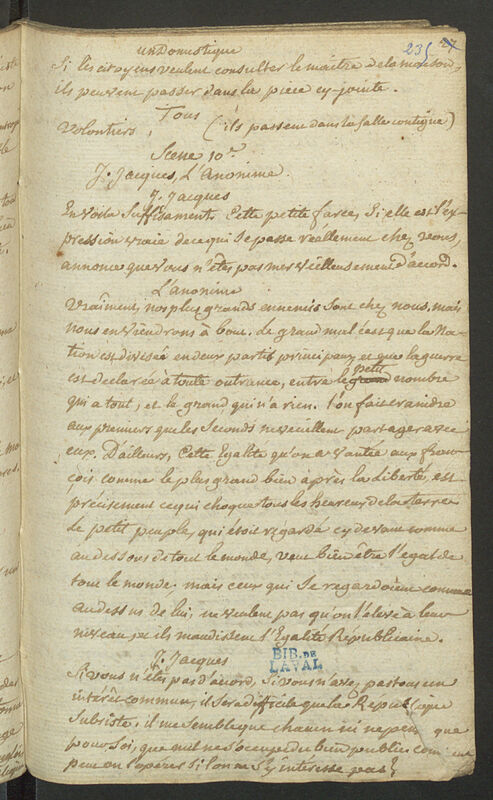 235 27
un Domestique
Si les citoyens veulent consulter le maître de la maison,
ils peuvent passer dans la piece cy-jointe.
Tous
Volontiers, (ils passent dans la salle contigue)
Scene 10e
J. Jacques, L'Anonime.
J. Jacques
En voila suffisament. Cette petite farce, si elle est l'ex-
pression vraie de ce qui se passe reellement chez vous,
annonce que vous n'êtes pas merveilleusement d'accord.
L'anonime
Vraiment, nos plus grands ennemis sont chez nous. mais
nous en viendrons à bout. Le grand mal c'est que la Na-
tion est divisée en deux partis principaux, et que la guerre
est declarée à toute outrance, entre le petit nombre
qui a tout, et le grand qui n'a rien. l'on fait craindre
aux premiers que les seconds ne veuillent partager avec
eux. D'ailleurs, cette Egalité qu'on a vantée aux fran-
çois comme le plus grand bien après la Liberté, est
précisement ce qui choque tous les heureux de la terre.
Le petit peuple, qui étoit regardé cy devant comme
au dessous de tout le monde, veut bien être l'egal de
tout le monde. mais ceux qui se regardoient comme
au dessus de lui, ne veulent pas qu'on l'éleve à leur
niveau, et ils maudissent l'Egalité Republicaine.
J. Jacques
BIB. DE
LAVAL
Si vous n'êtes pas d'acord, si vous n'avez pas tous un
intérêt commun, il sera difficile que la Republique
subsiste. il me semble que chacun ici ne pense que
pour soi, que nul ne s'occupe du bien public. comment
peut on l'opérer si l'on ne s'y intéresse pas?